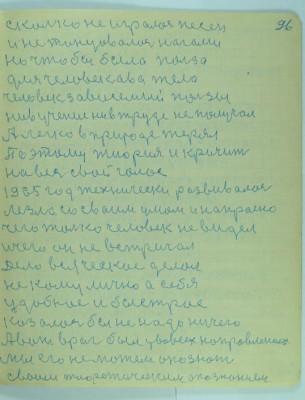 96
сколко не игрался песен
и не танцовался нагами
но чтобы была полза
для человекава тела
человек зависемый
не в учении не в труде не получал
А легко в природе терял
Поэтому теория и кричит
на вес свой голос
1935 год технически развивался
лезла со своим умом и напрасно
чего толко человек не видел
и чего он не встричал
Дело вслческое делал
не кому лично а себя
удобное и быстрое
казалося бы не надо ничего
А вот враг был у всех направлениях
мы его не можем опознат
своим теоретическим опознанием